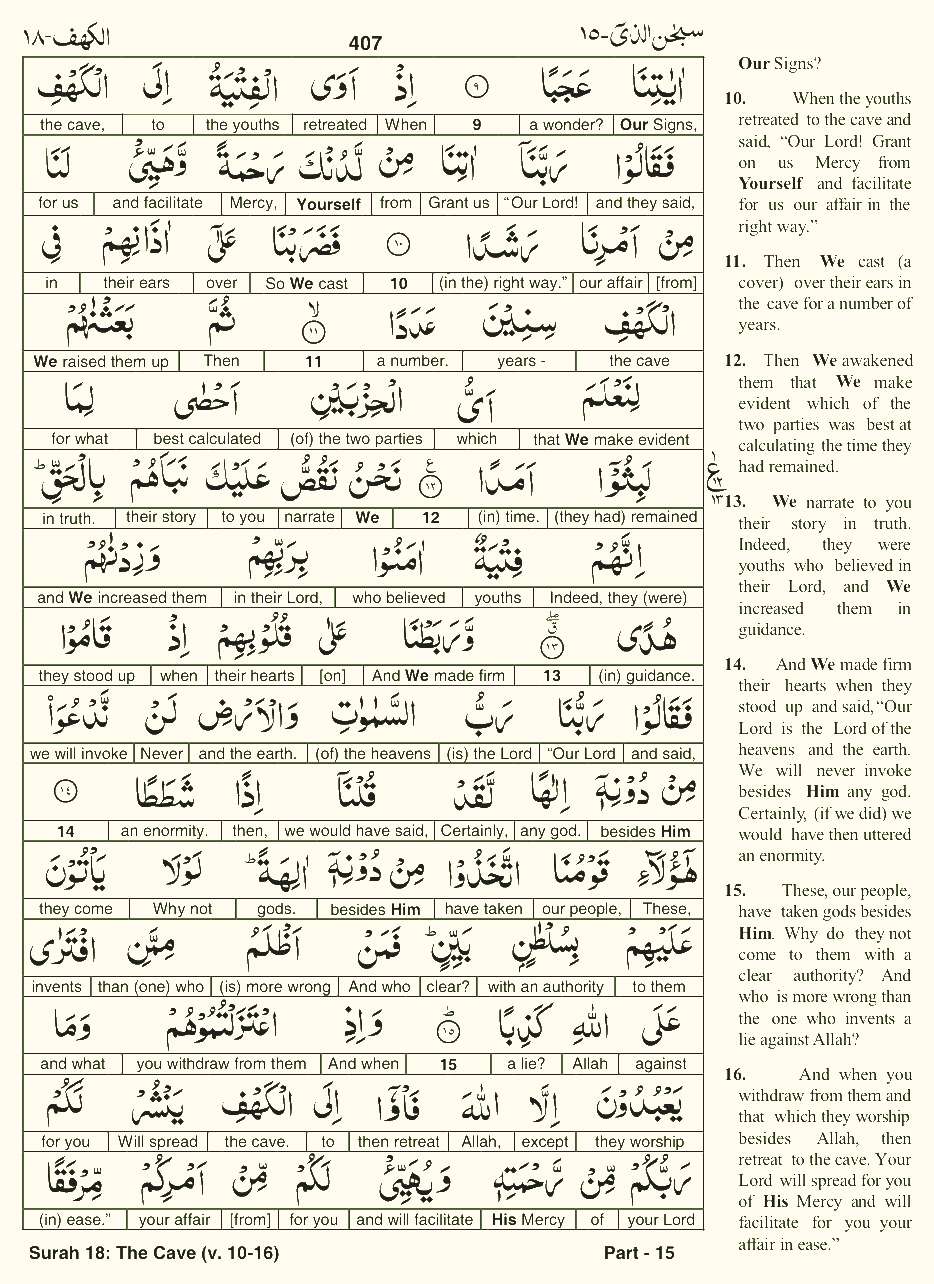 الكهف-١٨ 407 سبحٰن الذىٓ-١٥
اٰيٰتِنَا عَجَبًا ۹ اِذْ اَوَى الْفِتْيَةُ اِلَى الْكَهْفِ
the cave, to the youths retreated When 9 a wonder? Our Signs,
فَقَالُوْا رَبَّنَآ اٰتِنَا مِنْ لَّدُنْكَ رَحْمَةً وَّهَيِّئْ لَنَا
for us and facilitate Mercy, Yourself from Grant us “Our Lord! and they said,
مِنْ اَمْرِنَا رَشَدًا ۱۰ فَضَرَبْنَا عَلٰٓى اٰذَانِهِمْ فِى
in their ears over So We cast 10 (in the) right way.” our affair [from]
الْكَهْفِ سِنِيْنَ عَدَدًا ۙ ۱۱ ثُمَّ بَعَثْنٰهُمْ
We raised them up Then 11 a number. years - the cave
لِنَعْلَمَ اَىُّ الْحِزْبَيْنِ اَحْصٰى لِمَا
for what best calculated (of) the two parties which that We make evident
لَبِثُوْٓا اَمَدًا ۱۲ ع نَحْنُ نَقُصُّ عَلَيْكَ نَبَاَهُمْ بِالْحَقِّ ؕ
in truth. their story to you narrate We 12 (in) time. (they had) remained
اِنَّهُمْ فِتْيَةٌ اٰمَنُوْا بِرَبِّهِمْ وَزِدْنٰهُمْ
and We increased them in their Lord, who believed youths Indeed, they (were)
هُدًى ۱۳ وَّرَبَطْنَا عَلٰى قُلُوْبِهِمْ اِذْ قَامُوْا
they stood up when their hearts [on] And We made firm 13 (in) guidance.
فَقَالُوْا رَبُّنَا رَبُّ السَّمٰوٰتِ وَالْاَرْضِ لَنْ نَّدْعُوَا۟
we will invoke Never and the earth. (of) the heavens (is) the Lord “Our Lord and said,
مِنْ دُوْنِهٖٓ اِلٰهًا لَّقَدْ قُلْنَآ اِذًا شَطَطًا ۱٤
14 an enormity. then, we would have said, Certainly, any god. besides Him
هٰٓؤُلَآءِ قَوْمُنَا اتَّخَذُوْا مِنْ دُوْنِهٖٓ اٰلِهَةً ؕ لَوْلَا يَاْتُوْنَ
they come Why not gods. besides Him have taken our people, These,
عَلَيْهِمْ بِسُلْطٰنٍۢ بَيِّنٍ ؕ فَمَنْ اَظْلَمُ مِمَّنِ افْتَرٰى
invents than (one) who (is) more wrong And who clear? with an authority to them
عَلَى اللّٰهِ كَذِبًا ؕ ۱۵ وَاِذِ اعْتَزَلْتُمُوْهُمْ وَمَا
and what you withdraw from them And when 15 a lie? Allah against
يَعْبُدُوْنَ اِلَّا اللّٰهَ فَاْوٗٓا اِلَى الْكَهْفِ يَنْشُرْ لَكُمْ
for you Will spread the cave. to then retreat Allah, except they worship
رَبُّكُمْ مِّنْ رَّحْمَتِهٖ وَيُهَيِّئْ لَكُمْ مِّنْ اَمْرِكُمْ مِّرْفَقًا
(in) ease.” your affair [from] for you and will facilitate His Mercy of your Lord
Surah 18: The Cave (v. 10-16) Part - 15
Our Signs?
10. When the youths
retreated to the cave and
said, “Our Lord! Grant
on us Mercy from
Yourself and facilitate
for us our affair in the
right way.”
11. Then We cast (a
cover) over their ears in
the cave for a number of
years.
12. Then We awakened
them that We make
evident which of the
two parties was best at
calculating the time they
had remained.
13. We narrate to you
their story in truth.
Indeed, they were
youths who believed in
their Lord, and We
increased them in
guidance.
14. And We made firm
their hearts when they
stood up and said, “Our
Lord is the Lord of the
heavens and the earth.
We will never invoke
besides Him any god.
Certainly, (if we did) we
would have then uttered
an enormity.
15. These, our people,
have taken gods besides
Him. Why do they not
come to them with a
clear authority? And
who is more wrong than
the one who invents a
lie against Allah?
16. And when you
withdraw from them and
that which they worship
besides Allah, then
retreat to the cave. Your
Lord will spread for you
of His Mercy and will
facilitate for you your
affair in ease.”